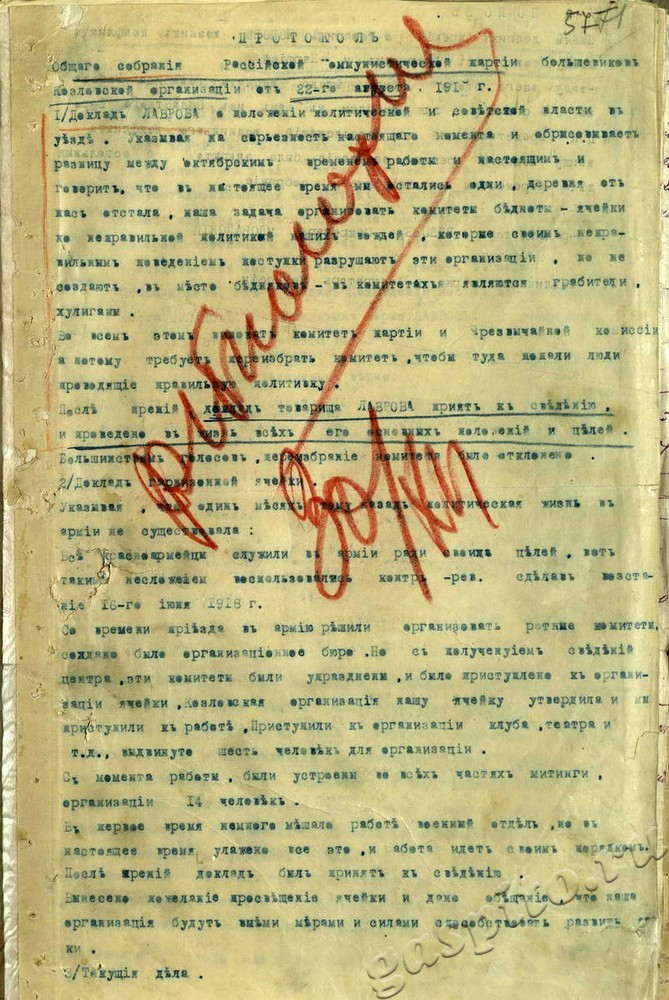 5771
ПРОТОКОЛЪ
Общаго собранія Россійской оммунистической партіи большевиков
Козловской организаціи отъ 22-го августа 191 г.
1/Докладъ ЛАВРОВА о положеніи политической и совѣтской власти въ
уѣздѣ . Указывая на серьезность настоящаго момента и обрисовываетъ
разницу между октябрскимъ временемъ работы и настоящимъ и
говоритъ, что въ настоящее время мы остались одни , деревня отъ
насъ отстала , наша задача организовать комитеты бѣдноты - ячейки
но неправильной политикой нашихъ вождей , которые своимъ непра-
вильнымъ поведеніемъ поступки разрушаютъ эти организаціи , но не
создаютъ , въ мѣсто бѣдняковъ - въ комитетахъ являются грабители ,
хулиганы .
Во всемъ этомъ виноватъ комитетъ партіи и Чрезвычайной комиссіи
а потому требуетъ переизбрать комитетъ ,чтобы туда попали люди
проводящіе правильную политику .
Послѣ преній докладъ товарища ЛАВРОВА принятъ къ свѣдѣнію ,
и проведено въ жизнь всѣхъ его основныхъ положеній и цѣлей .
Большинствомъ голосовъ ,переизбраніе комитета было отклонено .
2/Докладъ гарнизонной ячейки .
Указывая , что одинъ мѣсяцъ тому назадъ политическая жизнь въ
арміи не существовала :
Всѣ Красноармейцы служили въ арміи ради своихъ цѣлей , вотъ
такимъ несложеіемъ воспользовались контръ -рев. сдѣлавъ возста-
ніе 16-го іюня 1918 г.
Со времени пріѣзда въ армію рѣшили организовать ротные комитеты,
создано было организаціонное бюро .Но съ полученуіемъ свѣдѣній
центра ,эти комитеты были упразднены ,и было приступлено къ органи-
заціи ячейки ,Козловская организація нашу ячейку утвердила и мы
приступили къ работѣ ,Приступили къ организаціи клуба ,театра и
т.д., выдвинуто шесть человѣкъ для организаціи .
Съ момента работы , были устроены во всѣхъ частяхъ митинги ,
организаціи 14 человѣкъ .
Въ первое время немного мѣшало работѣ военный отдѣлъ ,но въ
настоящее время улажено все это ,и абота идетъ своимъ порядкомъ.
Послѣ преній докладъ былъ принятъ къ свѣдѣнію .
Вынесено пожеланіе просвѣщеніе ячейки и дано обѣщаніе что наша
организація будутъ всѣми мѣрами и силами способствовать развить
ки .
3/Текущія дѣла .
gaspito.ru